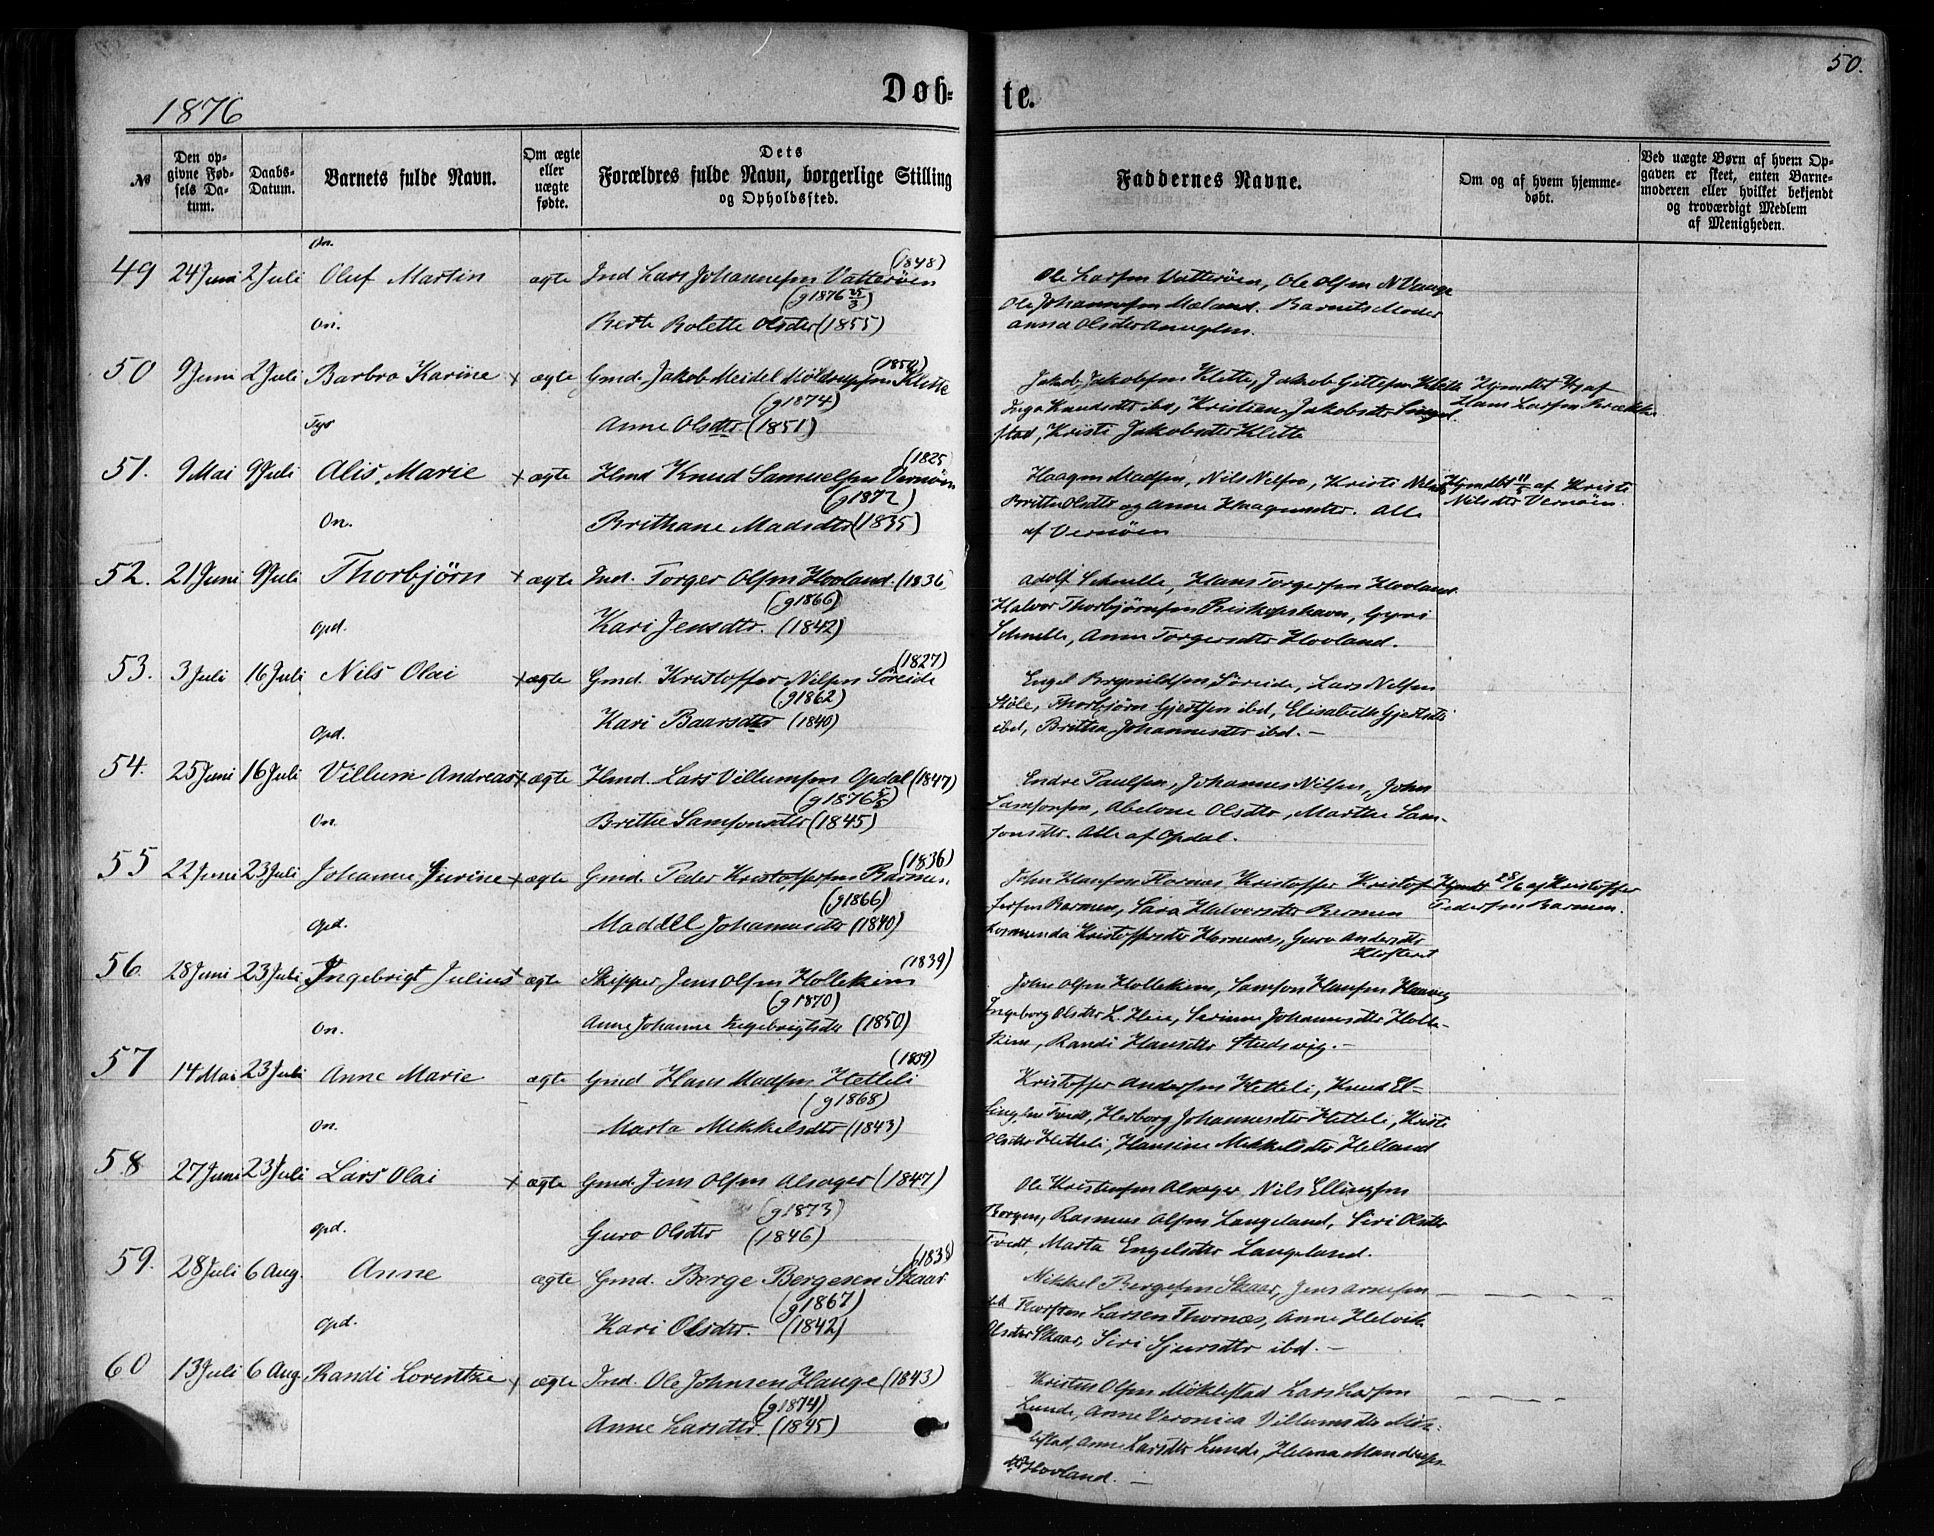 50.
1876
Døb- te.
№ | Den opgivne Fødsels Datum. | Daabs-Datum. | Barnets fulde Navn. | Om ægte eller uægte fødte. | Dets Forældres fulde Navn, borgerlige Stilling og Opholdssted. | Faddernes Navne. | Om og af hvem hjemmedøbt. | Ved uægte Børn af hvem Opgaven er skeet, enten Barnemoderen eller hvilket bekjendt og troværdigt Medlem af Menigheden.
On.
(1848)
49 24 Juni 2 Juli Oluf Martin ægte Ind Lars Johannesen Vatterøen
(g1876 25/3)
On. Berte Bolette Olsdter (1855)
Ole Larsen Vatterøen, Ole Olsen N Vaage
Ole Johannesen Mæland. Barnets Moder
Anna Olsdter
(1850)
50 9 Juni 2 Juli Barbro Karine x ægte Gmd. Jakob Meidel Møldrupsen Klette
(g1874)
Tys Anne Olsdtr (1851)
Jakob Jakobsen Klette, Jakob Gittlesen Klette
Inga Knudsdtr ibd, Kristiane Jakobsdtr
stad, Kristi Jakobsdtr Klette
Hjmdbt af
Hans Larsen
(1825
51. 9 Mai 9 Juli Alis Marie x ægte Hmd Knud Samuelsen Vernøen
(g1872)
On. Brithane Madsdtr (1835)
Haagen Madsen, Nils Nilsen, Kristi Nilsdtr
Britta Olsdtr og Anne Haagensdtr. Alle
af Vernøen
Hjmdbt 11/5 af Kristi
Nilsdtr Vernøen.
52. 21 Juni 9 Juli Thorbjørn x ægte Ind. Torger Olsen Hovland. (1836
(g1866)
Opd. Kari Jensdtr. (1842)
Adolf Schnelle, Hans Torgersen Hovland
Halvor Thorbjørnsen Biskopshavn, Gyri
Schnelle, Anna Torgersdtr Hovland.
(1827)
53. 3 Juli 16 Juli Nils Olai x ægte Gmd. Kristoffer Nilsen Søreide
(g1862)
Opd. Kari Baarsdtr (1840)
Engel Brynildsen Søreide, Lars Nilsen
Støle, Thorbjørn Gjertsen ibd, Elisabeth Gjertsdtr
ibd, Britha Johannesdtr ibd. –
54. 25 Juni 16 Juli Villum Andreas x ægte Hmd. Lars Villumsen Opdal (1847)
(g1876 5/5)
On. Brithe Samsonsdtr (1845)
Endre Paulsen, Johannes Nilsen, John
Samsonsen, Abelone Olsdtr, Marthe Sam-
sonsdtr. Alle af Opdal.
(1836)
55 22 Juni 23 Juli Johanne Jurine x ægte Gmd. Peder Kristoffersen Barmen
(g1866)
Opd. Madell Johannesdtr (1840)
John Hansen Hornes Kristoffer Kristof
fersen Barmen, Sara Halvorsdtr Barmen
Kristoffersdtr Hornes, Guro Andersdtr
Klosteret
Hjmdt 28/6 af Kristoffer
Pedersen Barmen.
(1839)
56. 28 Juni 23 Juli Ingebrigt Julius x ægte Skipper Jens Olsen Hollekim
(g1870)
On. Anne Johanne Ingebrigtsdtr (1850)
John Olsen Hollekim, Samson Hansen
Ingeborg Olsdtr L. Heie, Serine Johannesdtr Holle-
kim, Randi Hansdtr Stusvig. –
(1839)
57 14 Mai 23 Juli Anne Marie ægte Gmd Hans Madsen Hetleli
(g1868)
On. Marta Mikkelsdtr (1843)
Kristoffer Andersen Hetleli, Knud El-
lingsen Tvedt, Herborg Johannesdtr Hetleli, Kristi
Olsdtr Hetleli, Hansine Mikkelsdtr Helland
58 27 Juni 23 Juli Lars Olai x ægte Gmd. Jens Olsen Alsager (1847)
(g1873)
Opd. Guro Olsdtr (1846)
Ole Kristensen Alsager, Nils Ellingsen
Borgen, Rasmus Olsen Langeland, Siri Olsdtr
Tvedt, Marta Engelsdtr Langeland.
(1838)
59. 28 Juli 6 Aug. Anne ægte Gmd. Børge Børgesen Skaar
(g1867)
Opd. Kari Olsdtr. (1842)
Mikkel Børgesen Skaar, Jens Arnesen
ibd Thorsten Larsen Thornæs, Anne Helvik
Olsdtr Skaar, Siri Sjursdtr ibd. –
60 13 Juli 6 Aug Randi Lorentze x ægte Ind. Ole Johnsen Hauge (1843)
(g1874)
Anne Larsdtr. (1845)
Kristen Olsen Møklestad Lars Larsen
Lunde, Anne Veronica Villumsdtr Møk-
lestad, Anne Larsdtr Lunde, Helena Mandrups
dtr Hovland. –